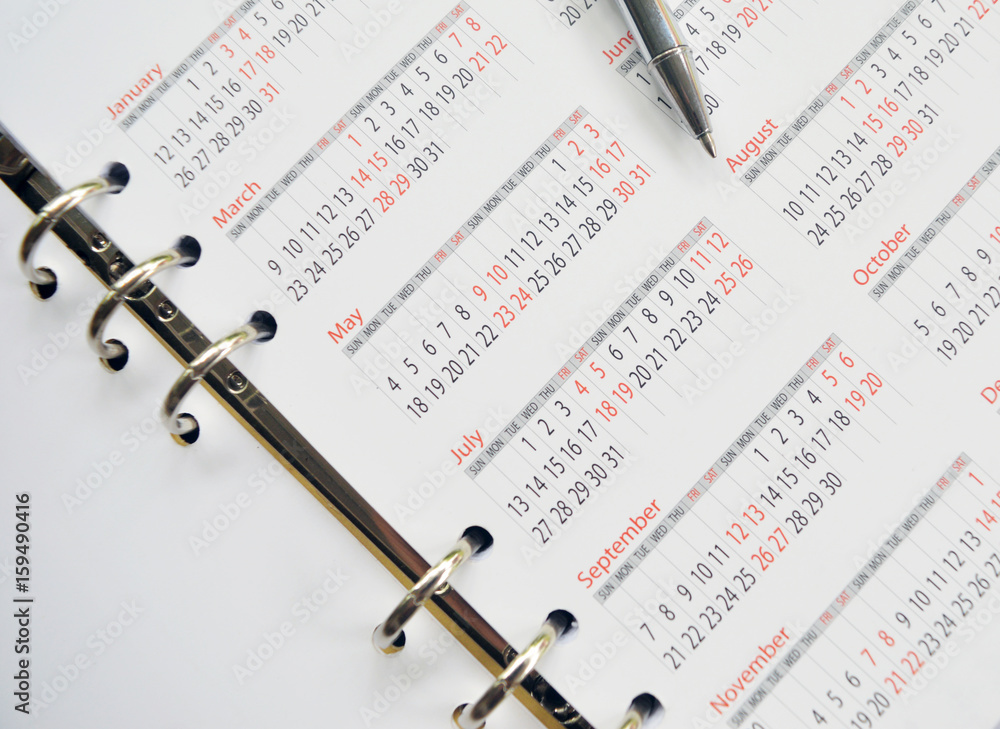 January
SUN MON TUE WED THU FRI SAT SUN
1 2 3 4 5
12 13 14 15 16 17 18 19 20 21
26 27 28 29 30 31
March
SUN MON TUE WED THU FRI SAT SUN MON TUE WED THU FRI SAT
1 2 3 4 5 6 7 8
9 10 11 12 13 14 15 16 17 18 19 20 21 22
23 24 25 26 27 28 29 30 31
May
SUN MON TUE WED THU FRI SAT SUN MON TUE WED THU FRI SAT
1 2 3
4 5 6 7 8 9 10 11 12 13 14 15 16 17
18 19 20 21 22 23 24 25 26 27 28 29 30 31
July
SUN MON TUE WED THU FRI SAT SUN MON TUE WED THU FRI SAT
1 2 3 4 5 6 7 8 9 10 11 12
13 14 15 16 17 18 19 20 21 22 23 24 25 26
27 28 29 30 31
September
SUN MON TUE WED THU FRI SAT SUN MON TUE WED THU FRI SAT
1 2 3 4 5 6
7 8 9 10 11 12 13 14 15 16 17 18 19 20
21 22 23 24 25 26 27 28 29 30
November
SUN MON TUE WED THU FRI SAT SUN MON TUE WED THU FRI SAT
1
7 8 9 10 11 12 13 14
18 19 20 21 22 23 24 25 26
June
SUN
1
August
SUN MON TUE WED THU FRI SAT SUN MON TUE WED THU
1 2 3 4 5 6
10 11 12 13 14 15 16 17 18 19 20
24 25 26 27 28 29 30 31
October
SUN MON TUE WED THU FRI SAT
5 6 7 8 9 10
19 20 21 22 23
De
Adobe Stock | #159490416